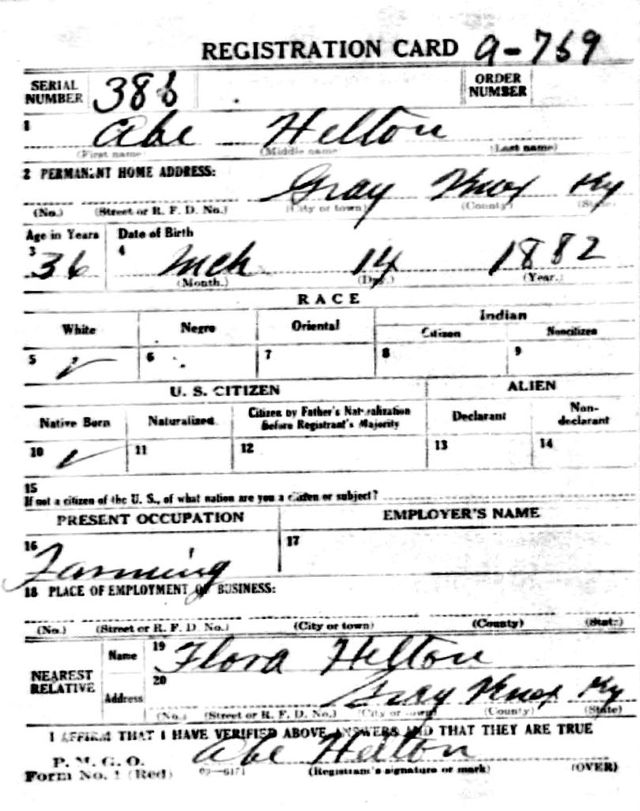 REGISTRATION CARD a-769
SERIAL NUMBER 386 ORDER NUMBER
1 Abe Helton
(First name) (Middle name) (Last name)
2 PERMANENT HOME ADDRESS:
Gray Knox Ky
(No.) (Street or R. F. D. No.) (City or town) (County) (State)
Age in Years Date of Birth
3 36 4 Mch 14 1882
(Month.) (Day.) (Year.)
RACE
White Negro Oriental Indian
Citizen Noncitizen
5 ✓ 6 7 8 9
U. S. CITIZEN ALIEN
Native Born Naturalized Citizen by Father's Naturalization Before Registrant's Majority Declarant Non-declarant
10 ✓ 11 12 13 14
15
If not a citizen of the U. S., of what nation are you a citizen or subject?
PRESENT OCCUPATION EMPLOYER'S NAME
16 Farming 17
18 PLACE OF EMPLOYMENT OR BUSINESS:
(No.) (Street or R. F. D. No.) (City or town) (County) (State)
NEAREST RELATIVE Name 19 Flora Helton
Address 20 Gray Knox Ky
(No.) (Street or R. F. D. No.) (City or town) (County) (State)
I AFFIRM THAT I HAVE VERIFIED ABOVE ANSWERS AND THAT THEY ARE TRUE
P. M. G. O.
Form No. 1 (Red) Abe Helton
(Registrant's signature or mark) (OVER)